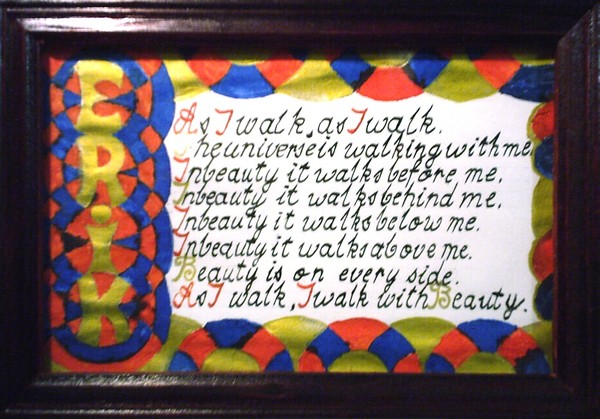 ERiK
As I walk, as I walk.
The universe is walking with me.
In beauty it walks before me,
In beauty it walks behind me,
In beauty it walks below me.
In beauty it walks above me.
Beauty is on every side.
As I walk, I walk with Beauty.